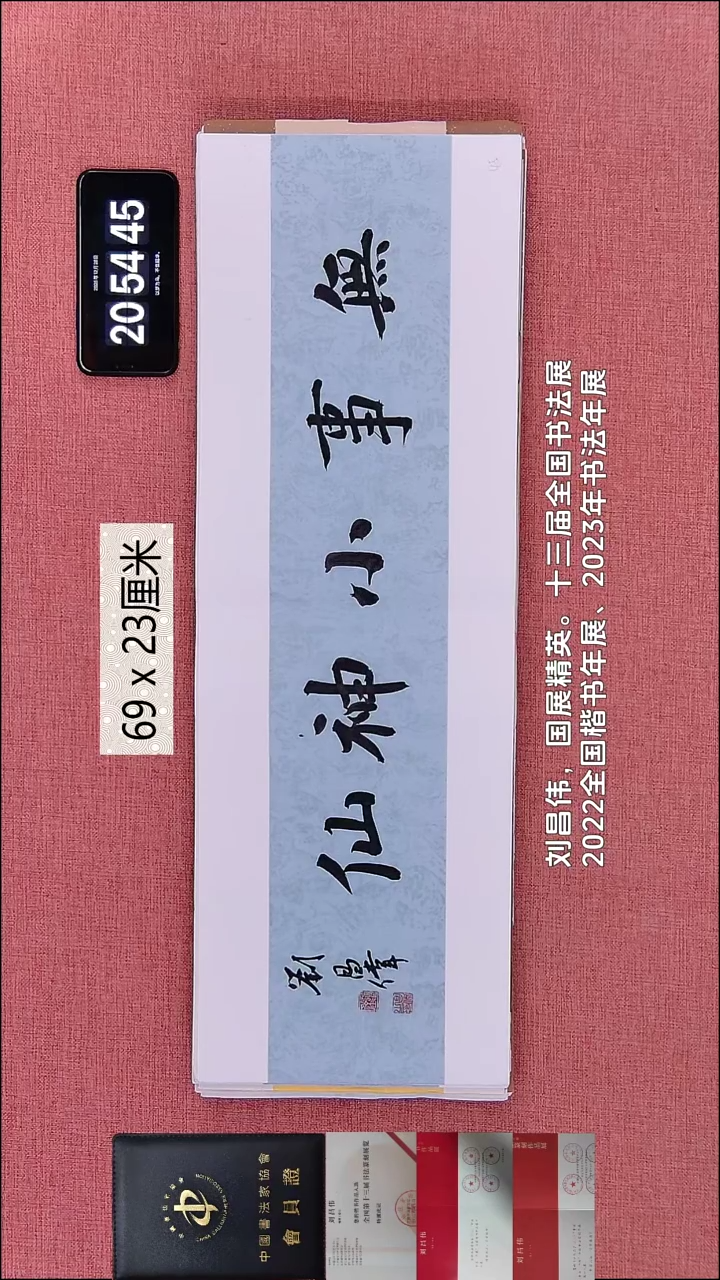 20 54 45
69 x 23厘米
無事小神仙
劉昌偉
刘昌伟，国展精英。十三届全国书法展
2022全国楷书年展、2023年书法年展
中國書法家協會
會員證
刘昌伟
全国第十三届书法篆刻展览
刘昌伟
刘昌伟